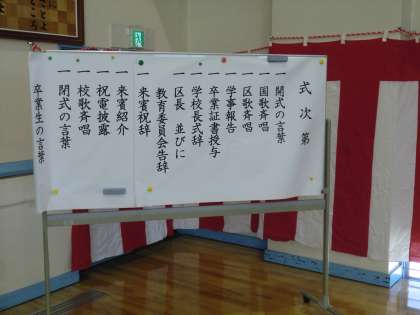 式次第
一 開式の言葉
一 国歌斉唱
一 区歌斉唱
一 学事報告
一 卒業証書授与
一 学校長式辞
一 区長 並びに
教育委員会告辞
一 来賓祝辞
一 来賓紹介
一 祝電披露
一 校歌斉唱
一 閉式の言葉
卒業生の言葉